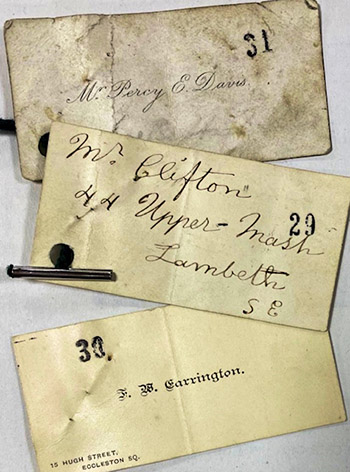 31
Mr. Percy E. Davis.
Mr. Clifton
44 Upper-Mash
29
Lambeth
S E
30.
F. W. Carrington.
15 HUGH STREET,
ECCLESTON SQ.